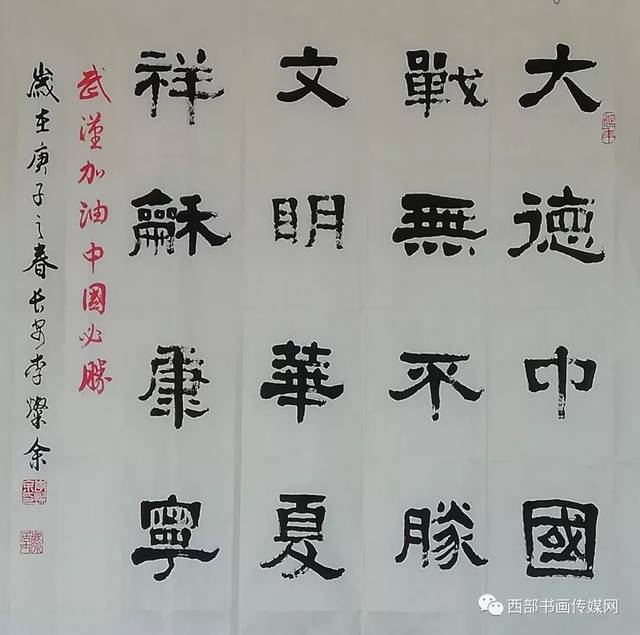 大德中國
戰無不勝
文明華夏
祥龢康寧
武漢加油中國必勝
歲在庚子之春長安李燦余
西部书画传媒网